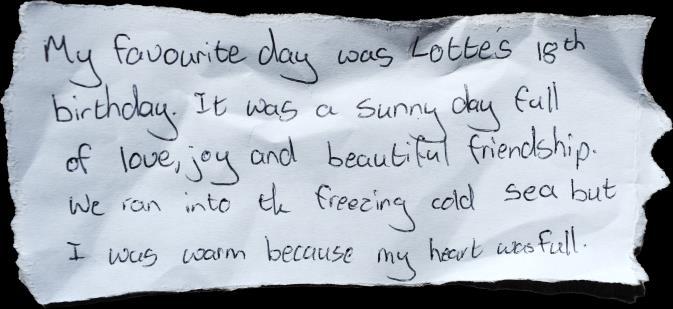 My favourite day was Lotte's 18th
birthday. It was a sunny day full
of love, joy and beautiful friendship.
We ran into the freezing cold sea but
I was warm because my heart was full.